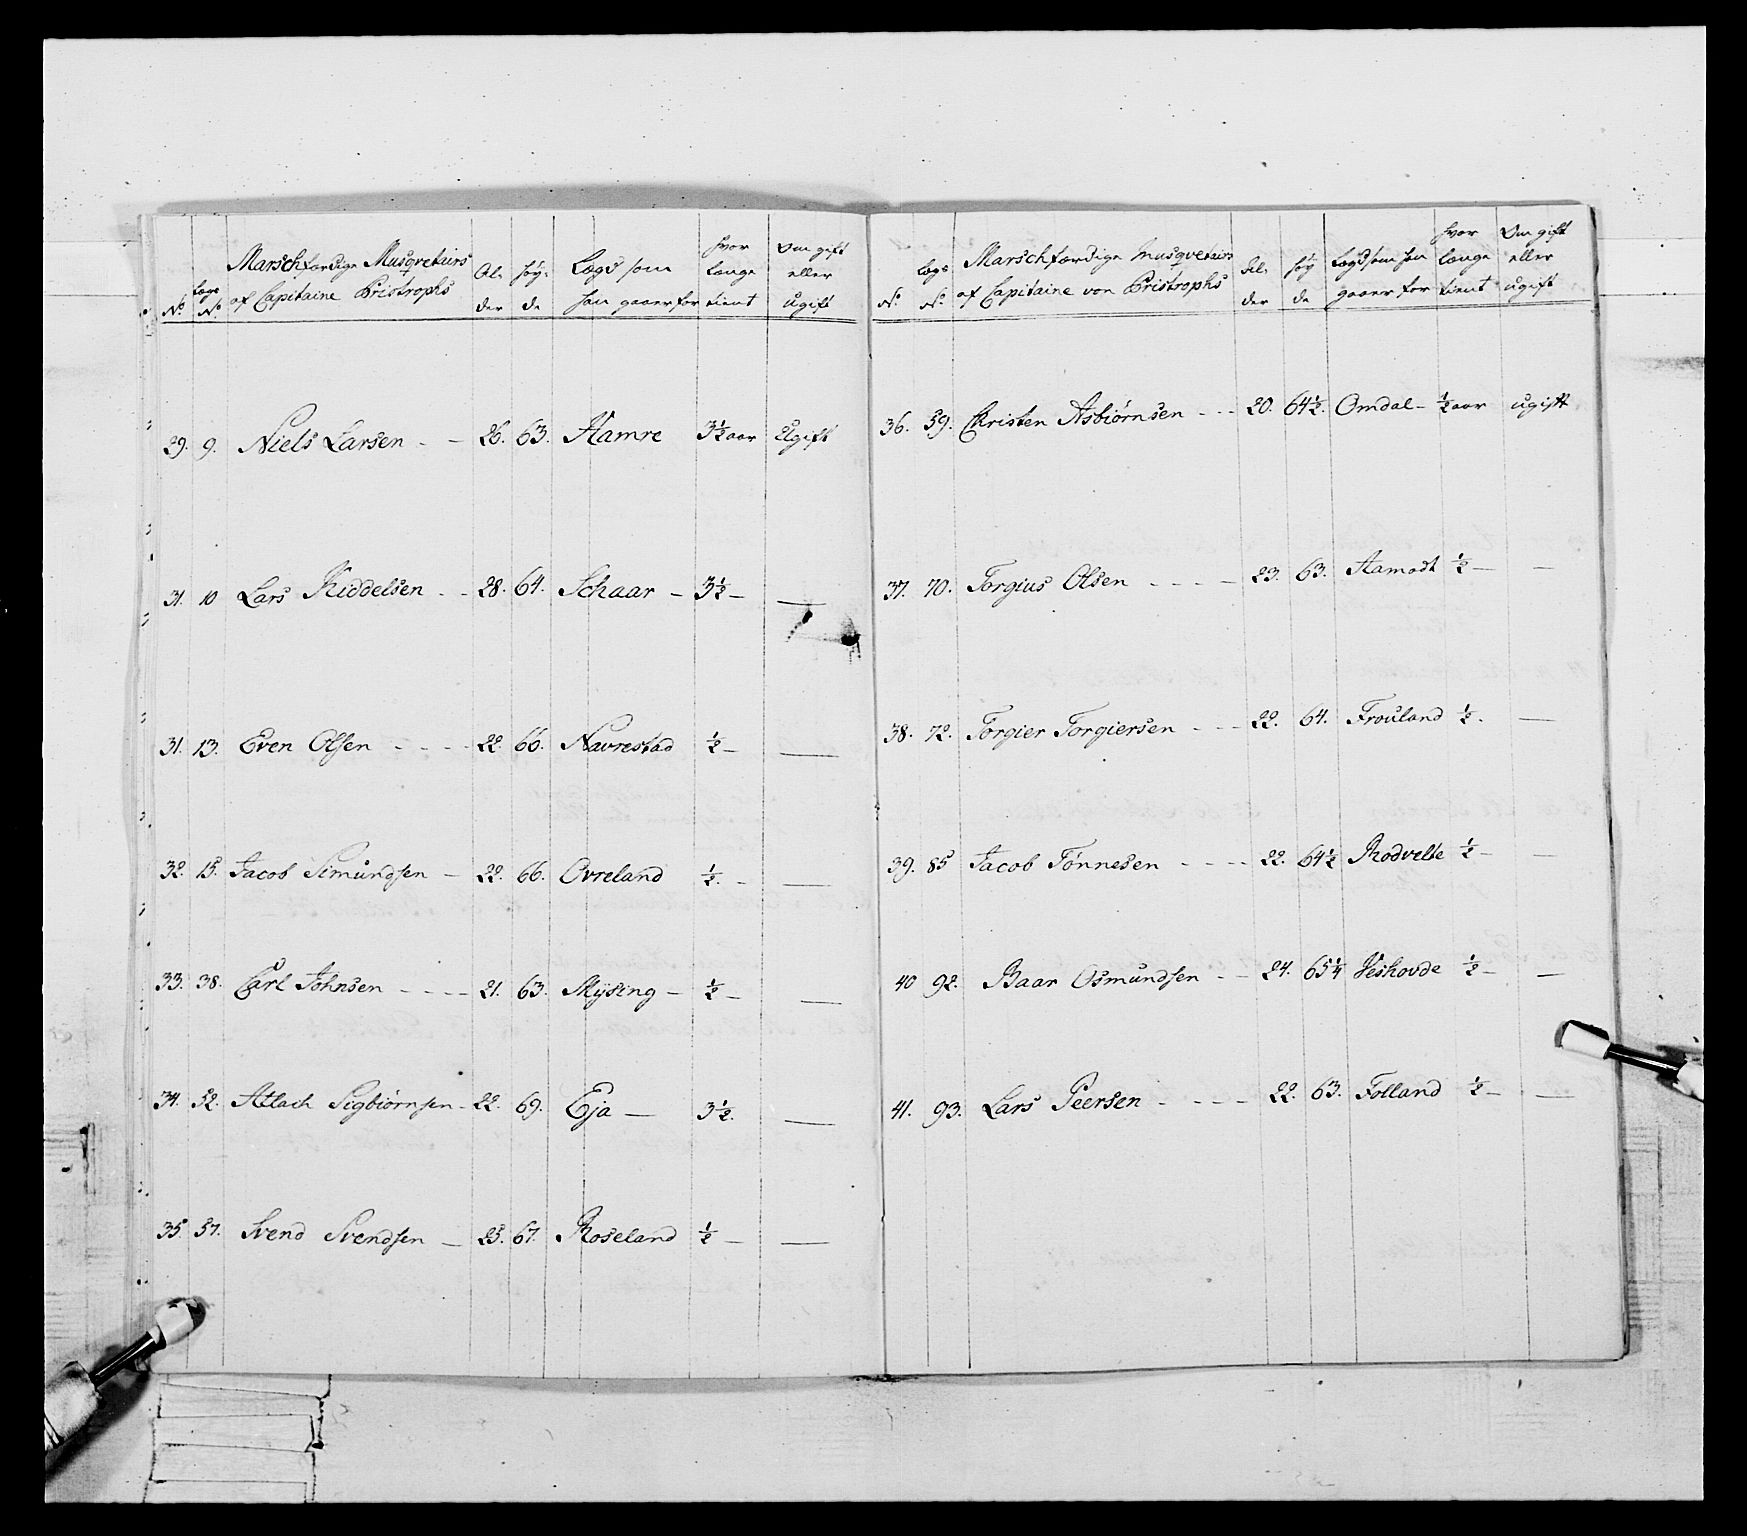 Marschfærdige Musqvetairs
af Capitaine Pristrophs
No
Lægs No
Al-
der
Høy-
de
Lægd som
han gaaer for
hvor
længe
tient
Om gift
eller
ugift
29. 9. Niels Larsen - - 26. 63. Hamre 3½ aar Ugift
31. 10 Lars Kiddelsen - - 28. 64. Schaar - 3½ - —
31. 13. Even Olsen - - - - 22. 66. Navrestad ½ - —
32. 15. Jacob Simundsen - 22. 66. Ovreland ½. - —
33. 38. Carl Johnsen - - - - 21. 63. Mÿsing - ½ - —
34. 52. Atlach Sigbiørnsen - 22. 69. Eja — 3½. —
35. 57. Svend Svendsen — 25. 67. Roseland ½ - —
Marschfærdige Musqvetairs
af Capitaine von Pristrophs
No
Lægs
No
Al-
der
høy
de
Lægd som han
gaaer for
hvor
længe
tient
Om gift
eller
ugift
36. 59. Christen Asbiørnsen - - - 20. 64½. Omdal - ½ aar ugift
37. 70. Torgius Olsen - - - - 23. 63. Aamodt ½ — —
38. 72. Torgier Torgiersen - - - 22. 64. Frouland ½. —
39. 85 Jacob Tønnesen - - - - 22. 64½ Rodvelte ½ - —
40 92. Baar Osmundsen - - 24. 65¼ Veshovde ½ - —
41. 93. Lars Peersen - - - - 22. 63. Folland ½ - —